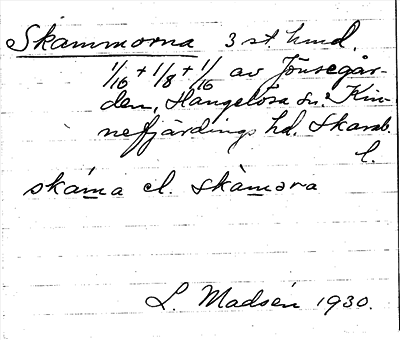 Skammorna 3 st. hmd.
1/16 + 1/8 + 1/16 av Jönsegår-
den, Hangelösa sn. Kin-
nefjärdings hd. Skarab.
l.
skáma el. skàmora
L. Madsén 1930.